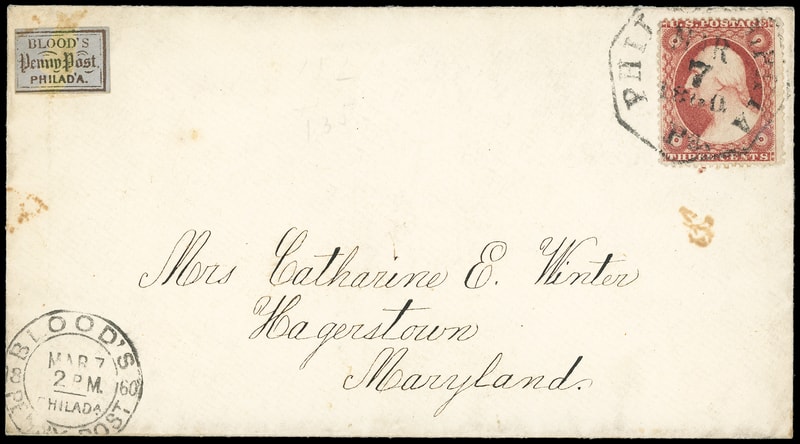 BLOOD'S
Penny Post,
PHILAD'A.
U.S. POSTAGE
THREE CENTS
MAR
7
1860
Pa
Mrs Catharine E. Winter
Hagerstown
Maryland.
BLOOD'S
MAR 7
2 P.M.
PHILADA
18
60
PENNY POST